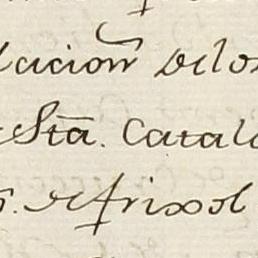 lacion delos
esta. Catalo
s. de frixol